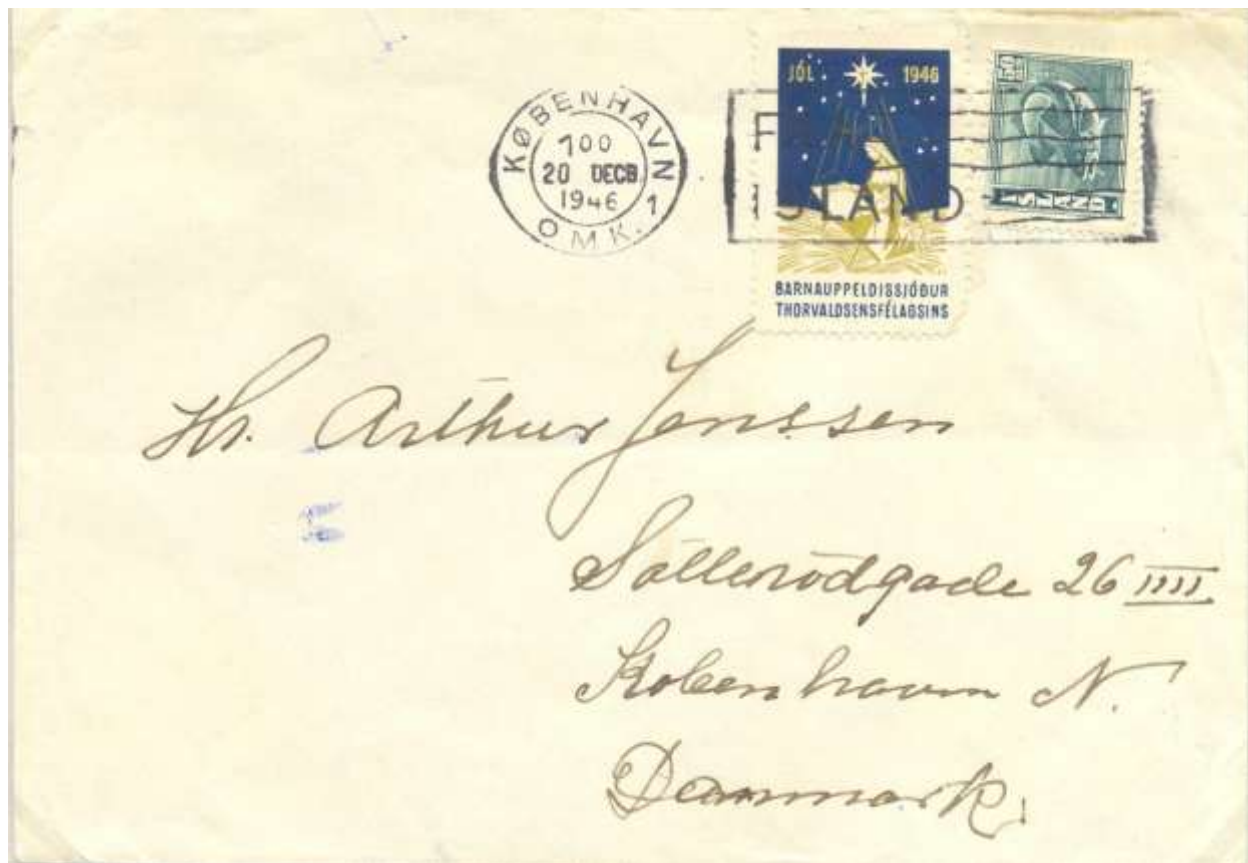 JÓL 1946
KØBENHAVN
7⁰⁰
20 DECB
1946
OMK. 1
ISLAND
ISLAND
BARNAUPPELDISSJÓÐUR
THORVALDSENSFÉLAGSINS
Hr. Arthur Jenssen
Søllerödgade 26 IIII
Köbenhavn N.
Danmark.